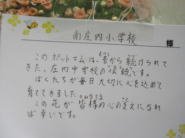 南庄内小学校
様
このボットマムは、昔から続けられて
きた、庄内中学校の伝統です。
ぼくたちが毎日大切に心を込めて
育ててきました。
この花が皆様の心の支えになれ
ば幸いです。